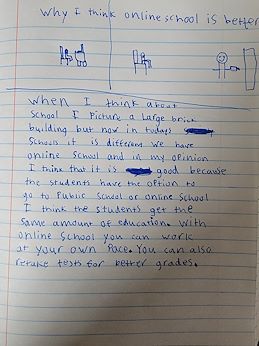 Why I think online school is better
When I think about
School I Picture a Large brick
building but now in todays
Schools it is different we have
online School and in my opinion
I think that it is good because
the students have the option to
go to Public School or online School
I think the students get the
same amount of education. With
online School you can work
at your own Pace. You can also
retake tests for better grades.